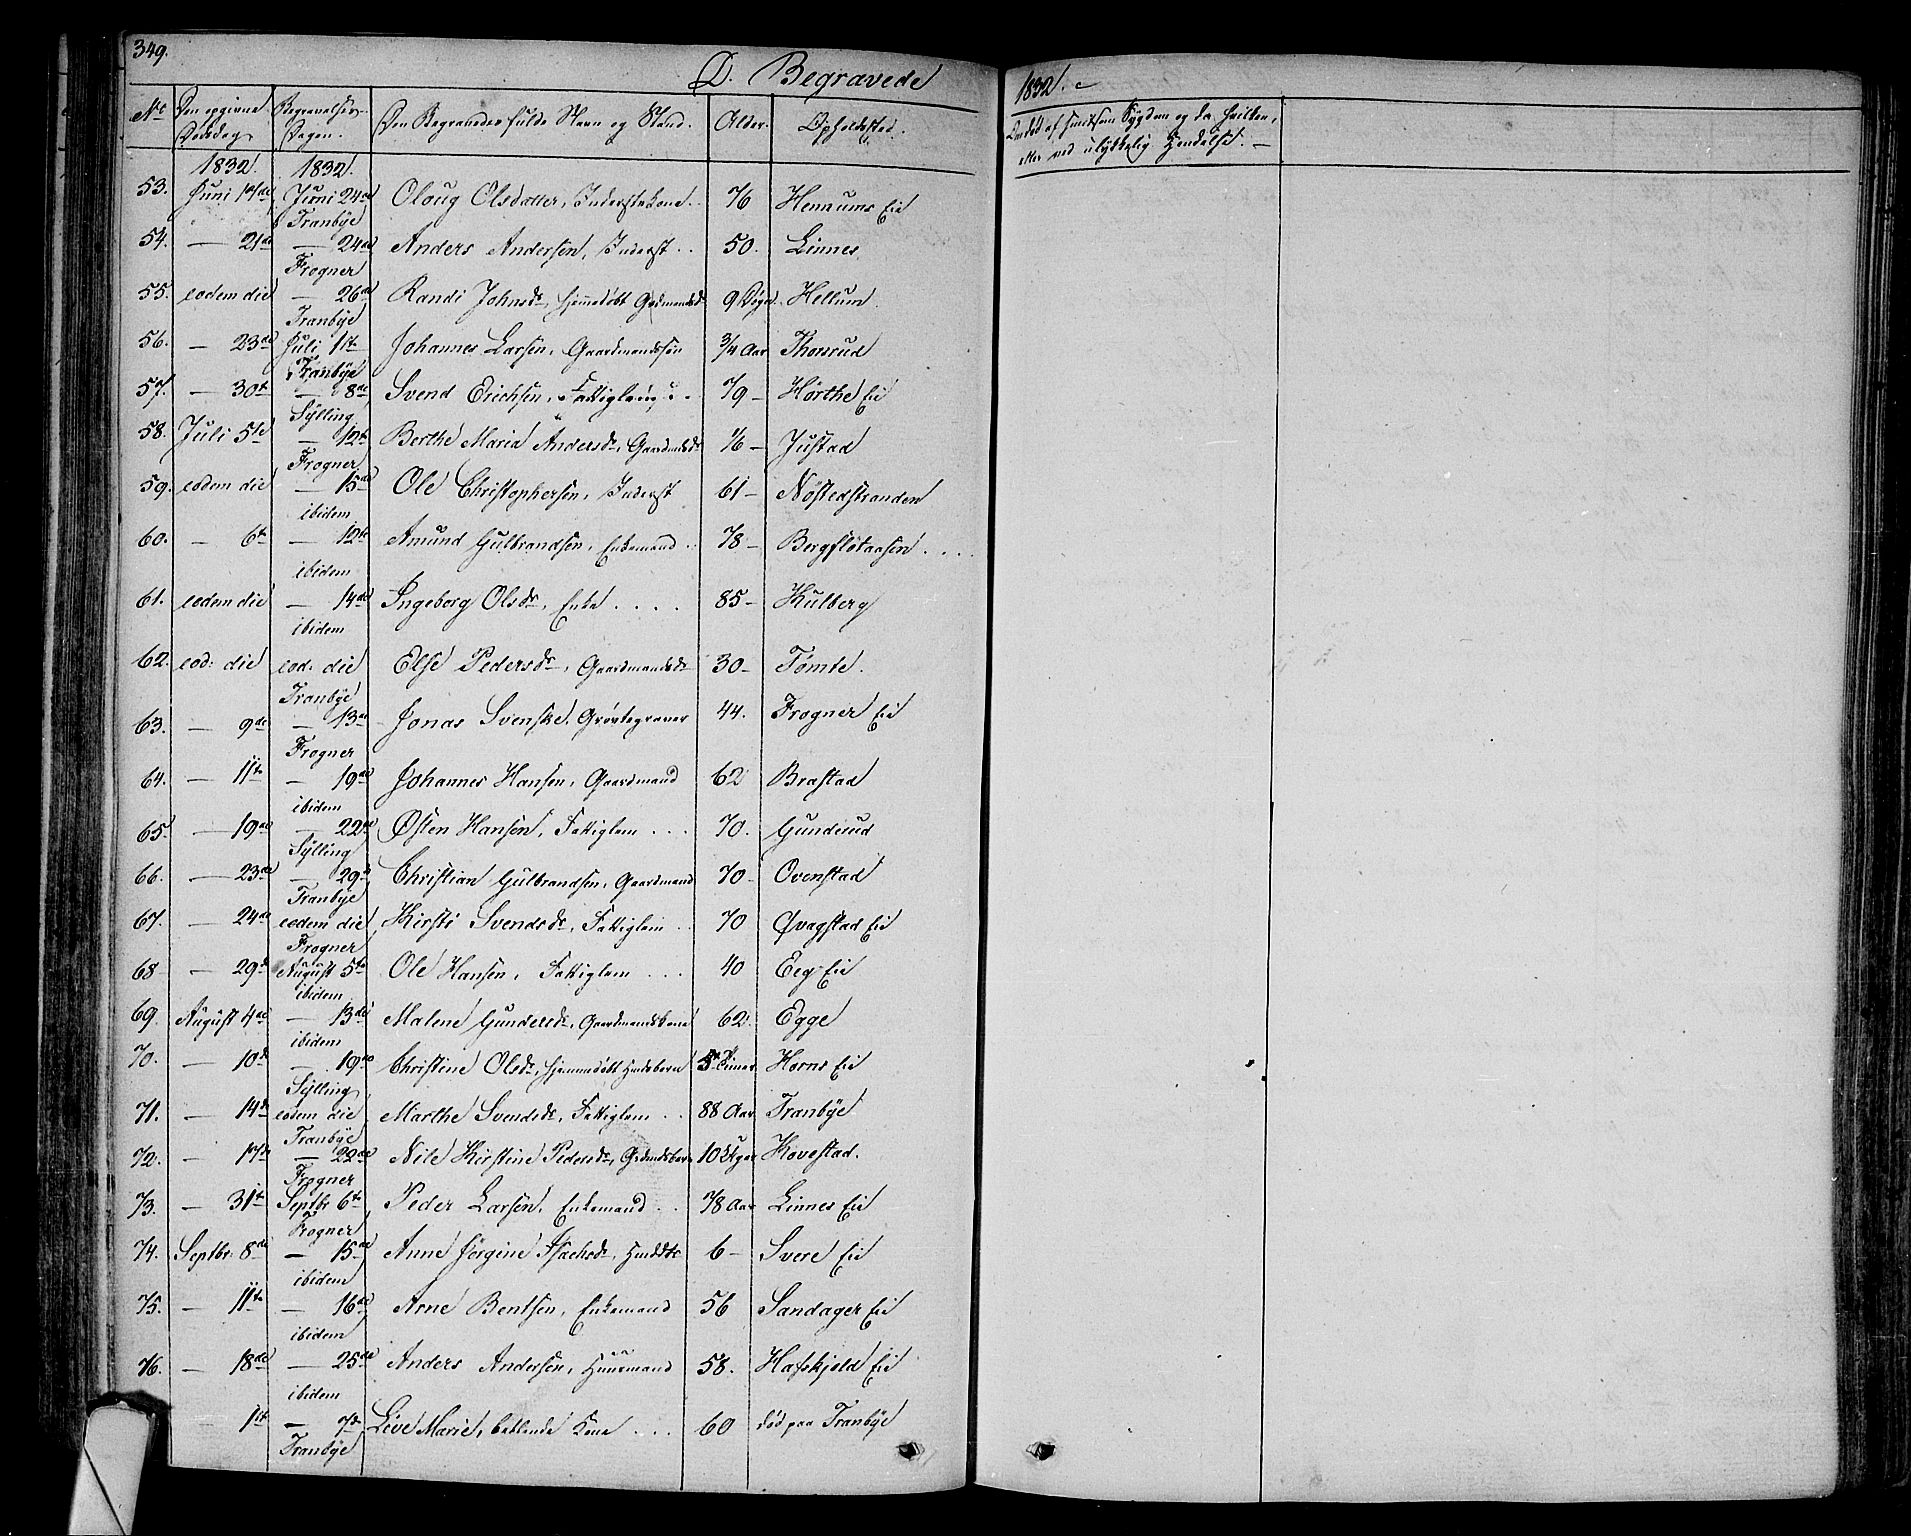 349.
D. Begravede 1832.
No Den opgivne Dødsdag Begravelses-Dagen. Den Begravedes fulde Navn og Stand. Alder. Opholdssted. Døded af smitsom Sygdom og da hvilken, eller ved ulykkelig Hendelse. —
1832. 1832.
53. Juni 17de Juni 24de Oloug Olsdatter, Inderstekone 76 Hennums Eie
Tranbye
54. — 21de — 24de Anders Andersen, Inderst 50. Linnes
Frogner
55. eodem die — 26de Randi Johnsdr, hjemmedøbt 9 Hellum
Tranbye
56. — 23de Juli 1ste Johannes Larsen, Gaardmandssøn 3/4 Aar Thorsrud
Tranbye
57. — 30te — 8de Svend Erichsen, Fattiglem 79 — Hørthe Eie
Sylling
58. Juli 5te — 12te Berthe Maria Andersdr, 16 — Justad
Frogner
59. eodem die — 15de Ole Christophersen, Inderst 61 — Nøstedstranden
ibidem
60. — 6te — 12te Amund Gulbrandsen, Enkemand 78 — Bergfløtaasen
ibidem
61. eodem die — 14de Ingeborg Olsdr, Enke 85 — Kulberg
ibidem
62. eod: die eod: die Else Pedersdr, Gaardmandsdr 30 — Tømte
Tranbye
63. — 9de — 13de Jonas Svenske, Grøvtegraver 44. Frogner Eie
Frogner
64. — 11te — 19de Johannes Hansen, Gaardmand 62 Brastad
ibidem
65. — 19de — 22de Østen Hansen, Fattiglem 70. Gunderud
Sylling
66. — 23de — 29de Christian Gulbrandsen, Gaardmand 70 — Ovenstad
Tranbye
67. — 24de eodem die Kirsti Svendsdr, Fattiglem 70 Qvagstad Eie
Frogner
68 — 29de August 5te Ole Hansen, Fattiglem 40 Eeg Eie
ibidem
69. August 4de — 13de Malene Gundersdr, Gaardmandskone 62. Egge
ibidem
70. — 10de — 19de Christine Olsdr, hjemmedøbt 5 Timer Horns Eie
Sylling
71. — 14de eodem die Marthe Svendsdr, Fattiglem 88 Aar Tranbye
Tranbye
72. — 17de — 22de Nile Kirstine Pedersdr, 10 Uger Kovestad.
Frogner
73. — 31te Septbr 6te Peder Larsen, Enkemand 78 Aar Linnes Eie
Frogner
74. Septbr: 8de — 15de Anne Jørgine Isachsdr, 6 — Svere Eie
ibidem
75. — 11te — 16de Arne Bentsen, Enkemand 56 Sandager Eie
ibidem
76. — 18de — 25de Anders Andersen, Huusmand 58. Hafskjold Eie
ibidem
1ste — 7de Live Marie, betlende Kone 60 død paa Tranbye
Tranbye